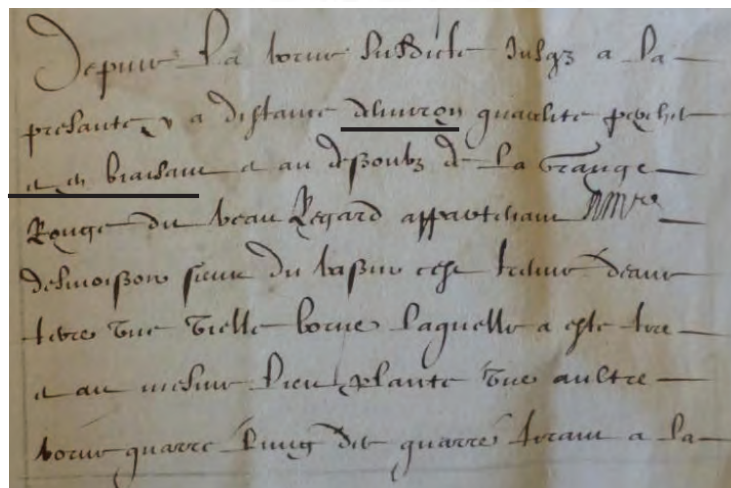 Depuis la borne susdicte Jusqz a la
presante y a distance denviron quarente perches
et en biaisant et au dessoubz de la Grange
Rouge du beau Regard appartenant
desmoisson sieur du bassin cest treuve deans
terre une vielle borne laquelle a este tire
et au mesme lieu plante une aultre
borne quarre lung des quarres tirant a la